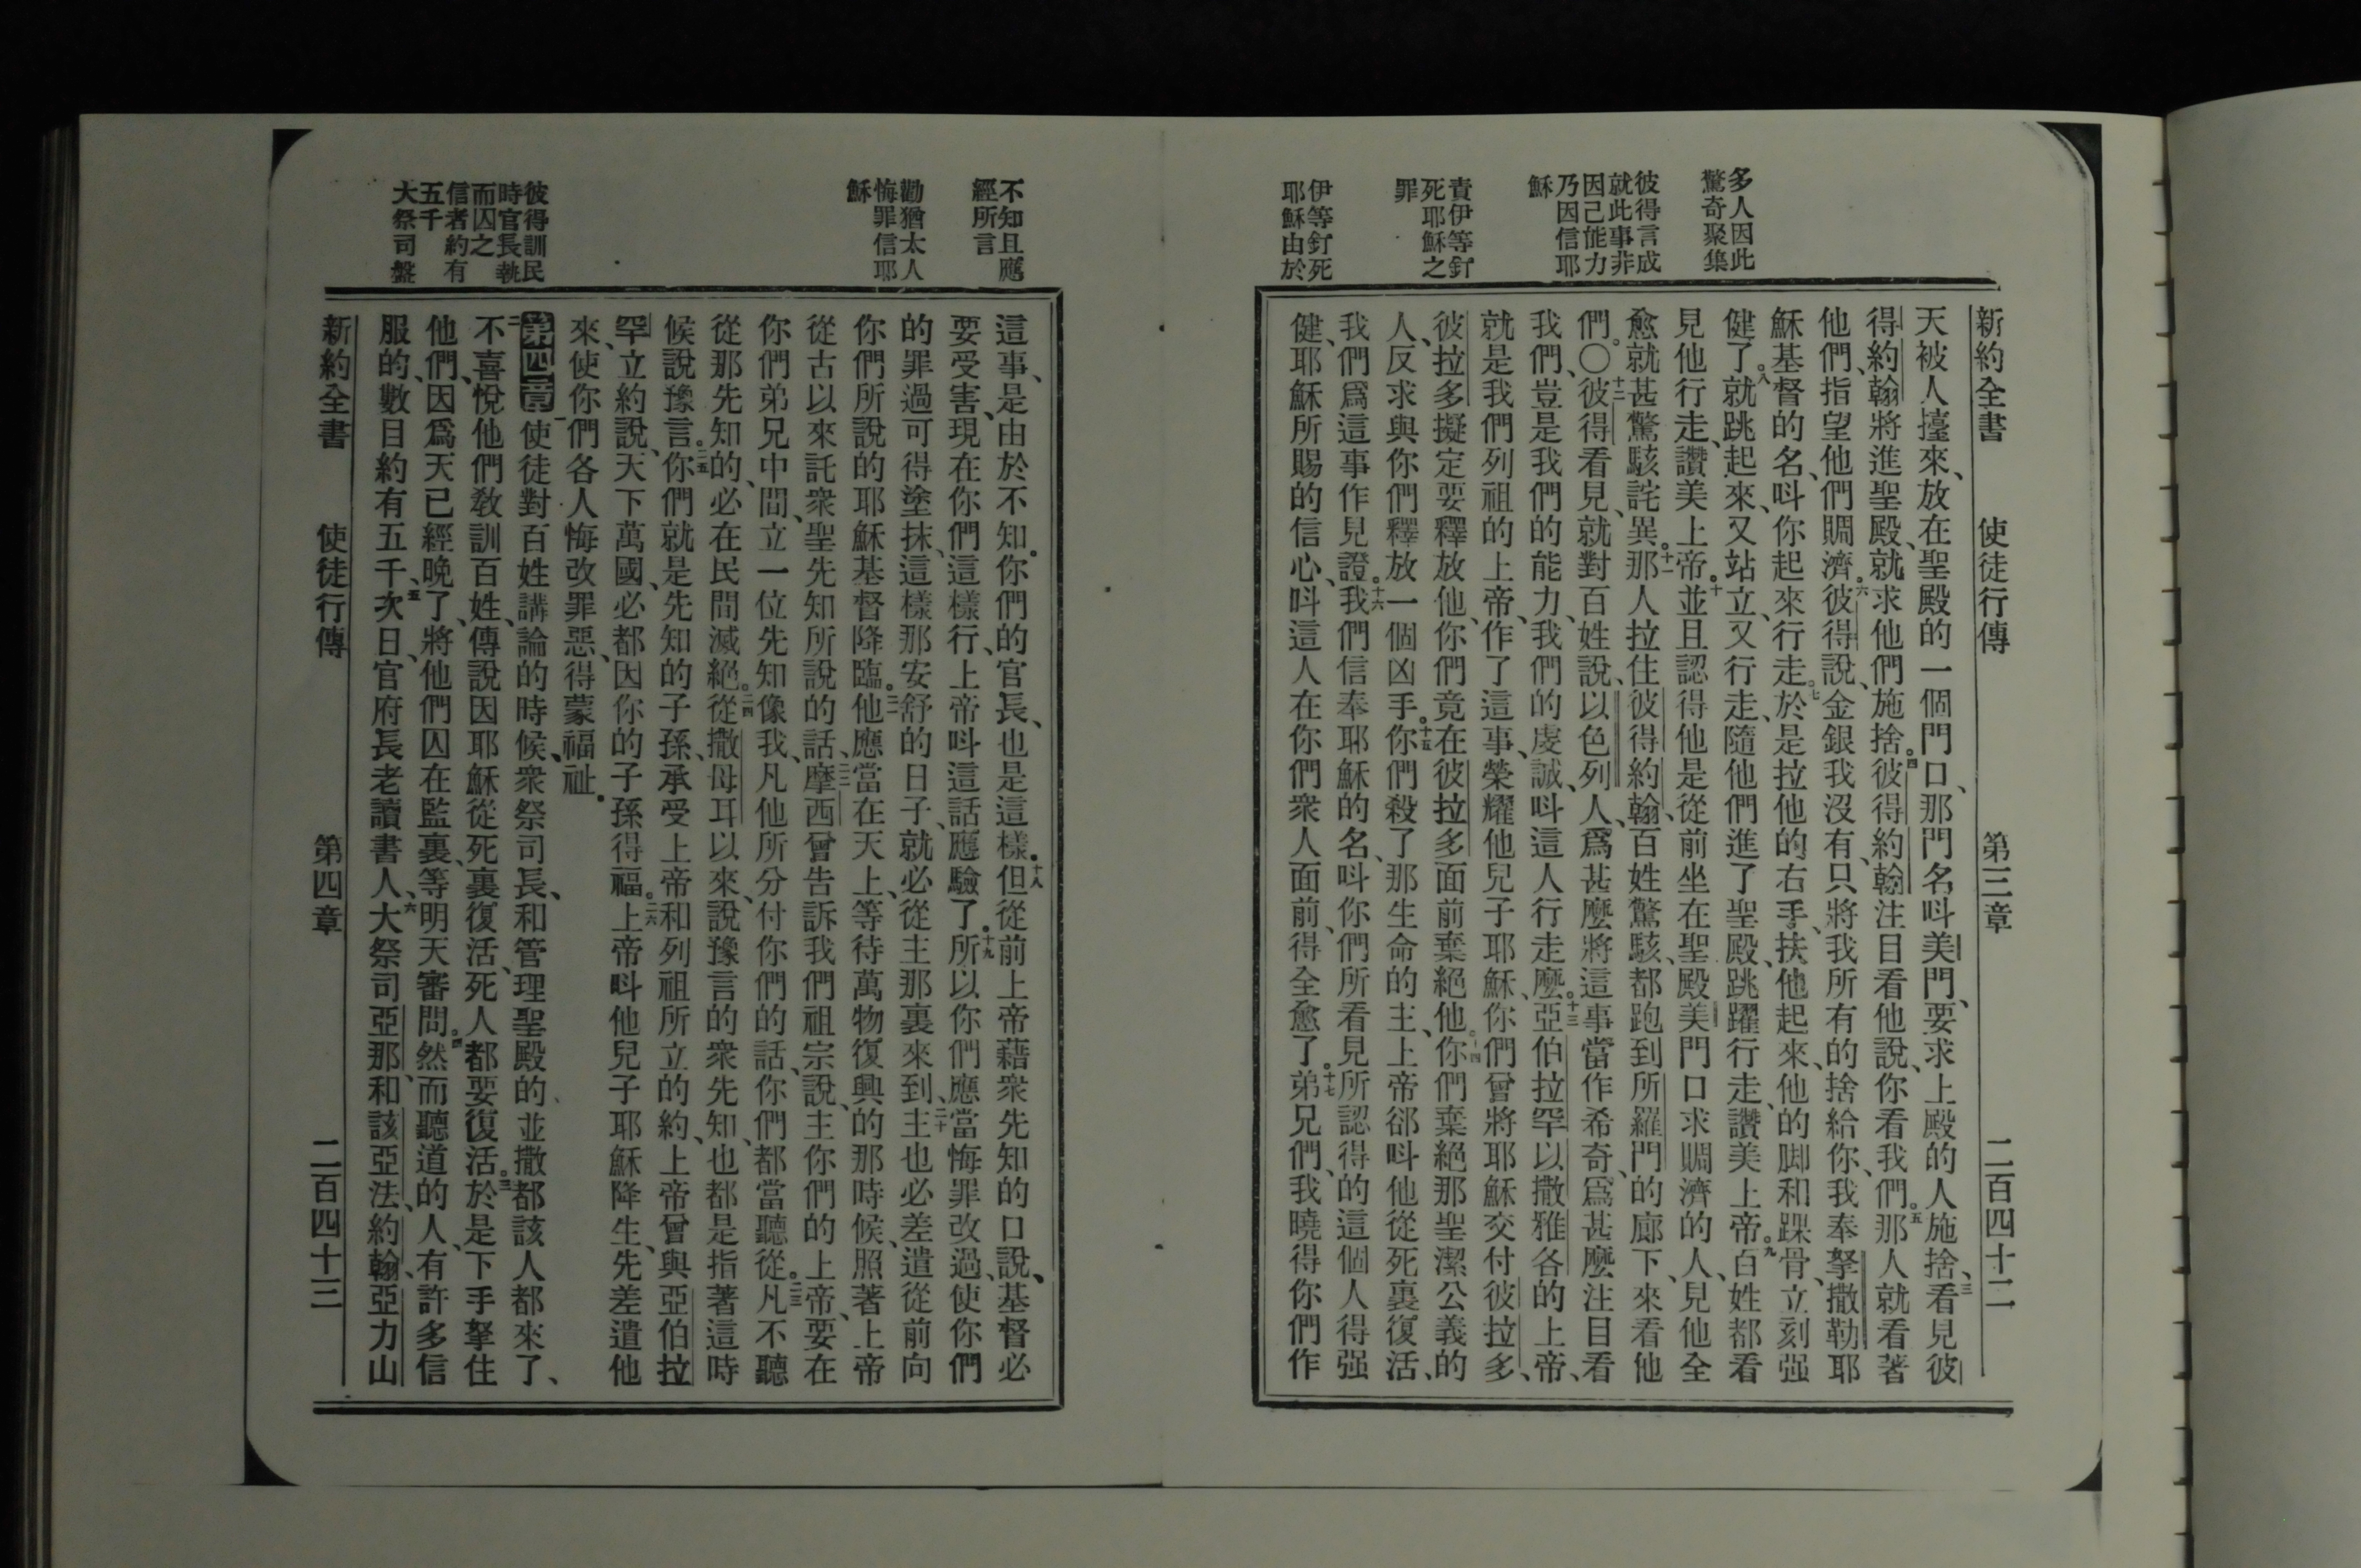 多人因此
驚奇聚集
彼得言成
就此事非
因己能力
乃因信耶
穌
責伊等釘
死耶穌之
罪
伊等釘死
耶穌由於
新約全書 使徒行傳 第三章 二百四十二
天被人擡來、放在聖殿的一個門口、那門名呌美門、要求上殿的人施捨、三看見彼
得約翰將進聖殿、就求他們施捨。四彼得約翰注目看他說、你看我們。五那人就看著
他們、指望他們賙濟。六彼得說、金銀我沒有、只將我所有的捨給你、我奉拏撒勒耶
穌基督的名、呌你起來行走。七於是拉他的右手、扶他起來、他的脚和踝骨、立刻强
健了。八就跳起來、又站立、又行走、隨他們進了聖殿、跳躍行走、讚美上帝。九百姓都看
見他行走、讚美上帝。十並且認得他是從前坐在聖殿美門口求賙濟的人、見他全
愈、就甚驚駭詫異。十一那人拉住彼得約翰、百姓驚駭、都跑到所羅門的廊下、來看他
們。〇十二彼得看見、就對百姓說、以色列人、爲甚麼將這事當作希奇、爲甚麼注目看
我們、豈是我們的能力、我們的虔誠、呌這人行走麼。十三亞伯拉罕以撒雅各的上帝、
就是我們列祖的上帝、作了這事、榮耀他兒子耶穌、你們曾將耶穌交付彼拉多、
彼拉多擬定要釋放他、你們竟在彼拉多面前棄絕他。十四你們棄絕那聖潔公義的
人、反求與你們釋放一個凶手。十五你們殺了那生命的主、上帝郤呌他從死裏復活、
我們爲這事作見證。十六我們信奉耶穌的名、呌你們所看見所認得的這個人得强
健、耶穌所賜的信心、呌這人在你們衆人面前、得全愈了。十七弟兄們、我曉得你們作
不知且應
經所言
勸猶太人
悔罪信耶
穌
彼得訓民
時官長執
而囚之
信者約有
五千
大祭司盤
這事、是由於不知。你們的官長、也是這樣。十八但從前上帝藉衆先知的口說、基督必
要受害、現在你們這樣行、上帝呌這話應驗了。十九所以你們應當悔罪改過、使你們
的罪過可得塗抹、這樣那安舒的日子、就必從主那裏來到、二十主也必差遣從前向
你們所說的耶穌基督降臨。二一他應當在天上、等待萬物復興的那時候、照著上帝
從古以來託衆聖先知所說的話、二二摩西曾告訴我們祖宗說、主你們的上帝、要在
你們弟兄中間、立一位先知像我、凡他所分付你們的話、你們都當聽從。二三凡不聽
從那先知的、必在民間滅絕。二四從撒母耳以來、說豫言的衆先知、也都是指著這時
候說豫言。二五你們就是先知的子孫、承受上帝和列祖所立的約、上帝曾與亞伯拉
罕立約說、天下萬國、必都因你的子孫得福。二六上帝呌他兒子耶穌降生、先差遣他
來、使你們各人悔改罪惡、得蒙福祉。
第四章 一使徒對百姓講論的時候、衆祭司長、和管理聖殿的、並撒都該人都來了、
二不喜悅他們敎訓百姓、傳說因耶穌從死裏復活、死人都要復活。三於是下手拏住
他們、因爲天已經晚了、將他們囚在監裏、等明天審問。四然而聽道的人、有許多信
服的、數目約有五千、五次日、官府長老讀書人、六大祭司亞那、和該亞法、約翰、亞力山
新約全書 使徒行傳 第四章 二百四十三